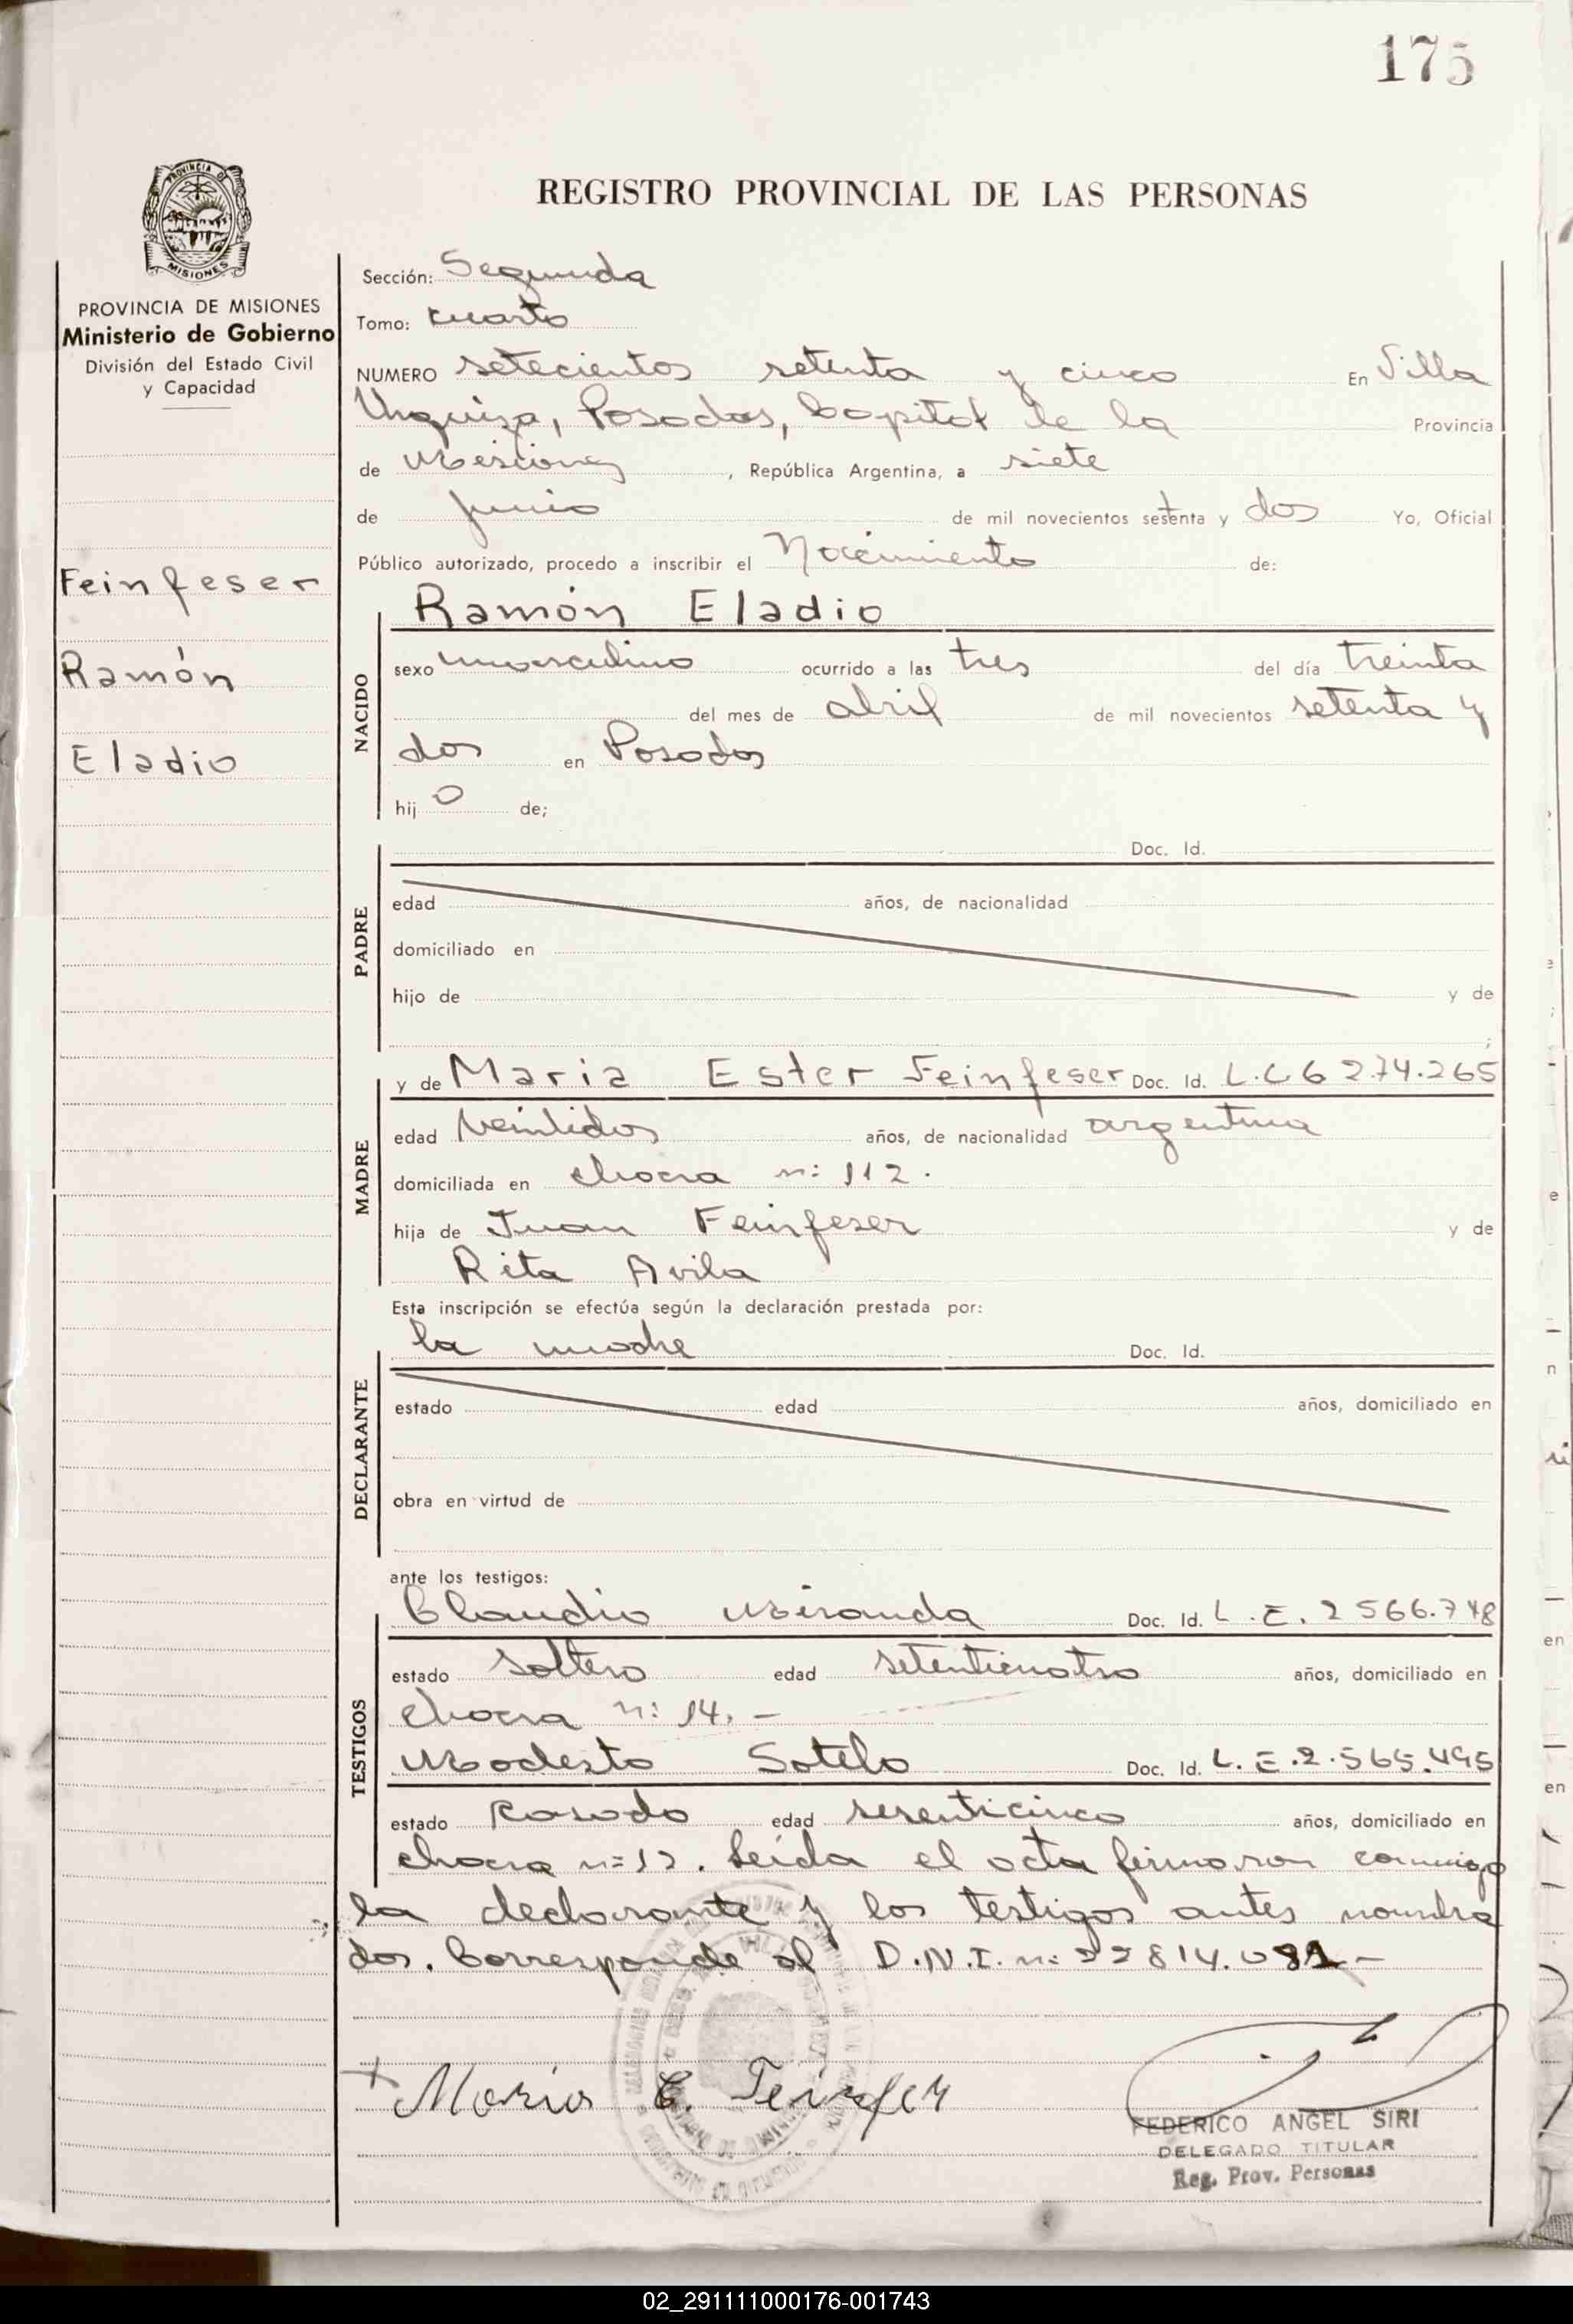 175
PROVINCIA DE
MISIONES
REGISTRO PROVINCIAL DE LAS PERSONAS
PROVINCIA DE MISIONES
Ministerio de Gobierno
División del Estado Civil
y Capacidad
Feinfeser
Ramón
Eladio
Sección: Segunda
Tomo: cuarto
NUMERO setecientos setenta y cinco En Villa
Urquiza, Posadas, Capital de la Provincia
de Misiones, República Argentina, a siete
de junio de mil novecientos setenta y dos Yo, Oficial
Público autorizado, procedo a inscribir el Nacimiento de:
NACIDO
Ramón Eladio
sexo masculino ocurrido a las tres del día treinta
del mes de abril de mil novecientos setenta y
dos en Posadas
hij o de;
PADRE
Doc. Id.
edad años, de nacionalidad
domiciliado en
hijo de y de
;
MADRE
y de Maria Ester Feinfeser Doc. Id. L.C 6 274.265
edad veintidos años, de nacionalidad argentina
domiciliada en chacra n: 112.
hija de Juan Feinfeser y de
Rita Avila
Esta inscripción se efectúa según la declaración prestada por:
DECLARANTE
la madre Doc. Id.
estado edad años, domiciliado en
obra en virtud de
ante los testigos:
TESTIGOS
Claudio Miranda Doc. Id. L.E. 2 566.748
estado soltero edad setenticuatro años, domiciliado en
chacra n: 14. -
Modesto Sotelo Doc. Id. L.E. 2.565.495
estado casado edad sesenticinco años, domiciliado en
chacra n= 12. Leida el acta firmaron conmigo
la declarante y los testigos antes nombra
dos. Corresponde al D.N.I. n: 22 814.081-
Maria E.
FEDERICO ANGEL SIRI
DELEGADO TITULAR
Reg. Prov. Personas
02_291111000176-001743